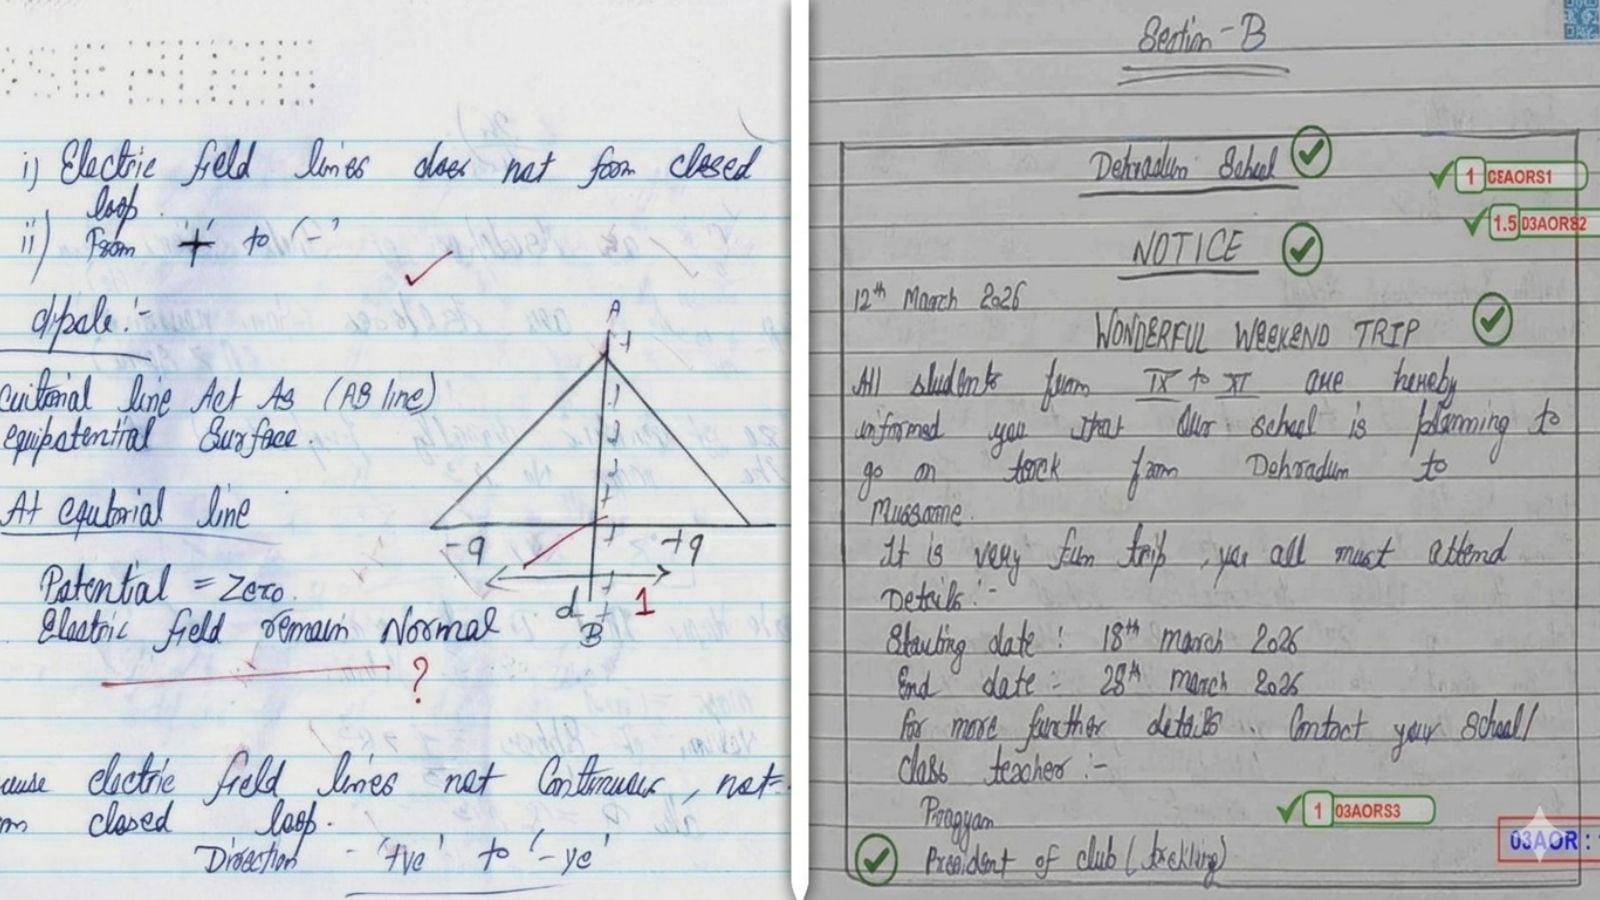 i) Electric field lines does not form closed
loop.
ii) From '+' to '-'
dipole:-
At equtorial line
cuitorial line Act As (AB line)
equipotential Surface.
A
-q
+q
d
1
B
Potential = Zero.
Electric field remain Normal
?
cause electric field lines not Continuous, not
closed loop.
Direction - '+ve' to '-ve'
Section - B
Dehradun School
1 CEAORS1
1.5 03AORS2
NOTICE
12th March 2026
WONDERFUL WEEKEND TRIP
All students from IX to XI are hereby
informed you that our school is planning to
go on from Dehradun to
Mussorie.
It is very fun trip, you all must attend
Details:-
Starting date: 18th march 2026
End date - 28th march 2026
for more further details. Contact your School/
class teacher:-
Pragyan
1 03AORS3
President of club (
03AOR :